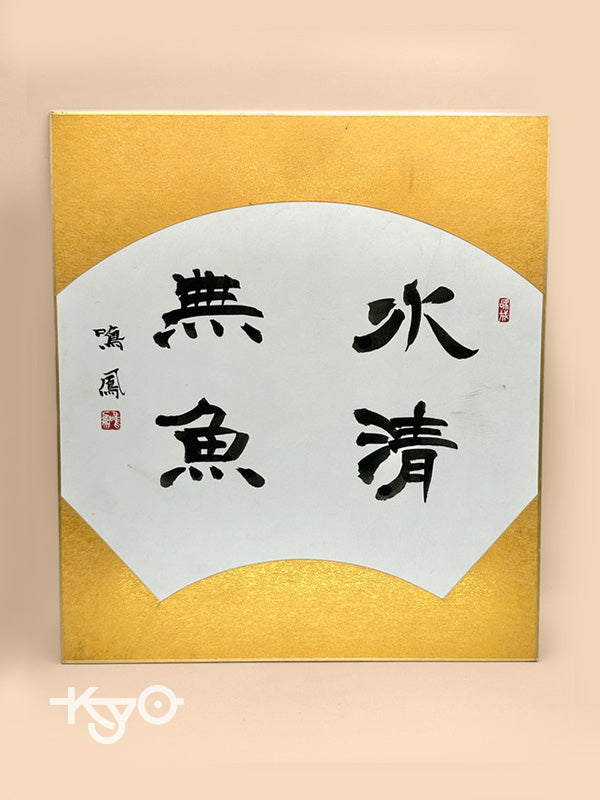 水清
無魚
鳴鳳
KYO